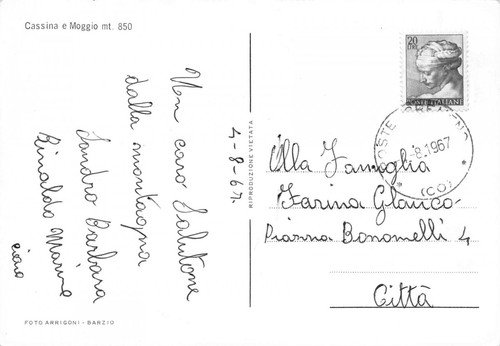 Cassina e Moggio mt. 850
Un caro Salutone
dalla montagna
Sandro Barbara
Rinaldo Marina
ciao
4-8-67
RIPRODUZIONE VIETATA
FOTO ARRIGONI - BARZIO
20
LIRE
POSTE ITALIANE
POSTE
-8.1967
(CO)
Alla Famiglia
Farina Glauco
Piazza Bonomelli 4
Città